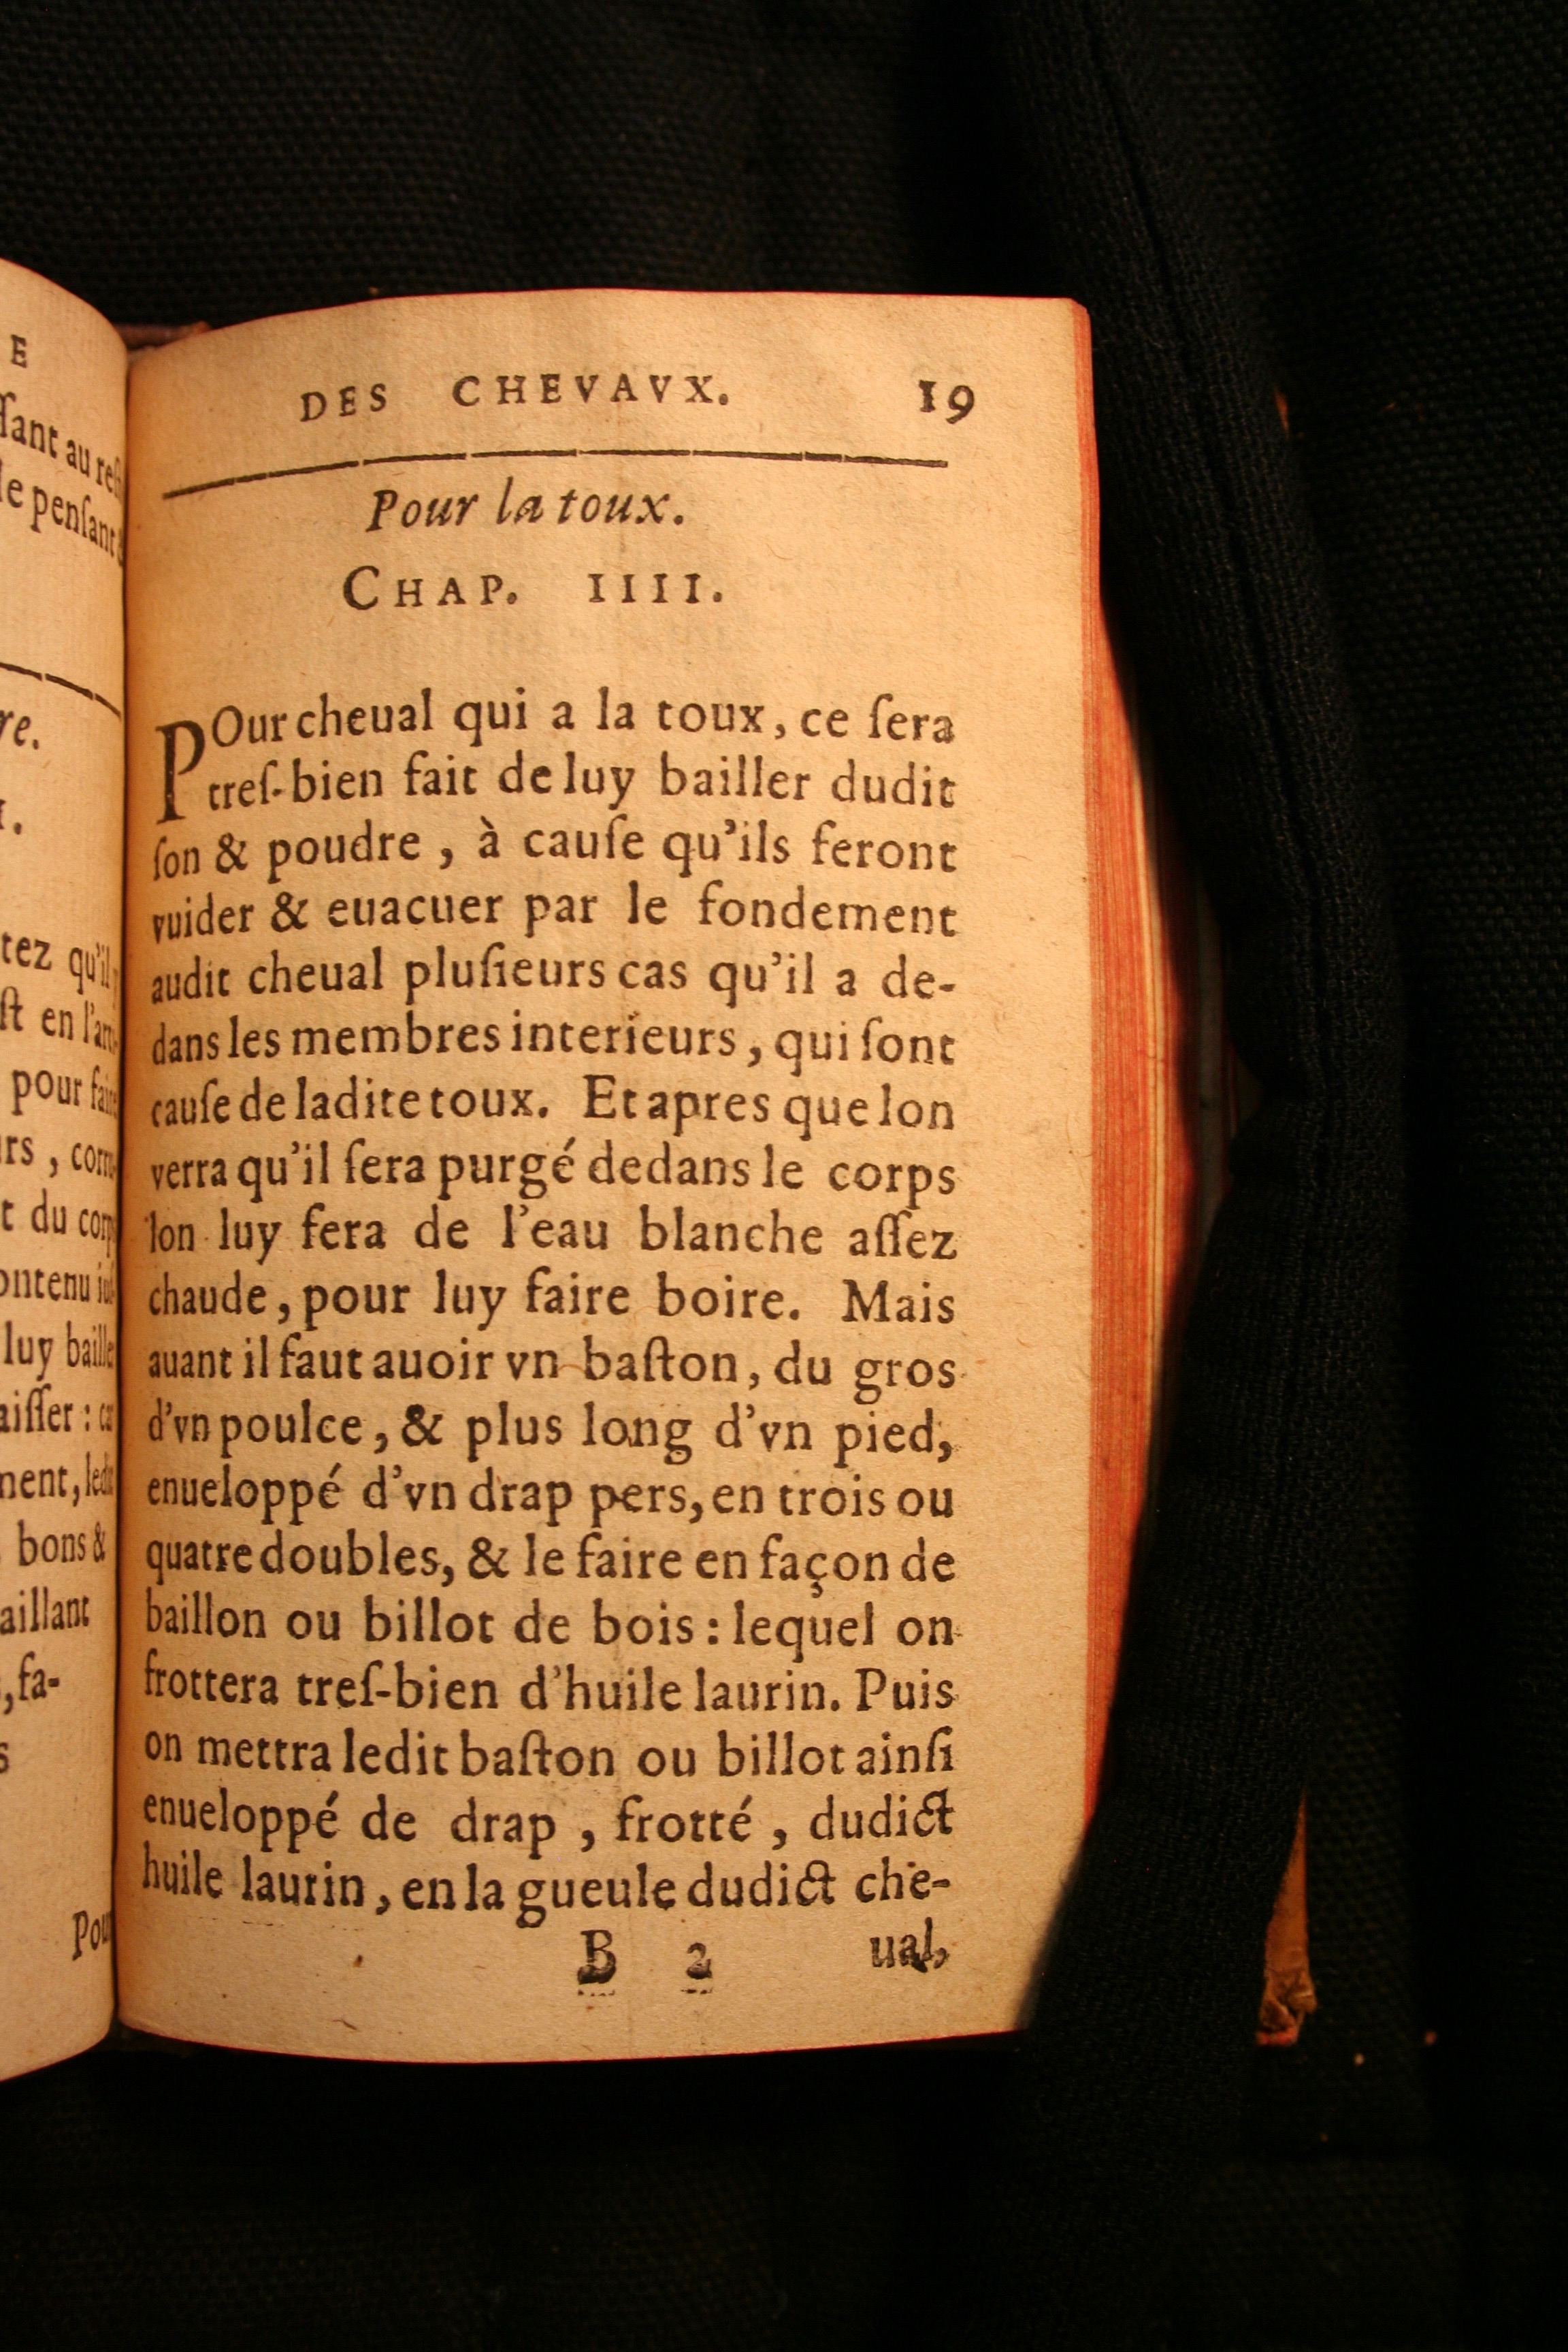 E
ſſant au reſt
le penſant
re.
I.
tez qu'il
ſt en l'am
pour faire
rs, com
t du corp
ontenu iuſ
luy baille
aiſſer : ca
ment, ledi
bons &
aillant
, fa-
s
Pou
DES CHEVAVX. 19
Pour la toux.
CHAP. IIII.
POur cheual qui a la toux, ce ſera
treſ-bien fait de luy bailler dudit
ſon & poudre, à cauſe qu'ils feront
vuider & euacuer par le fondement
audit cheual pluſieurs cas qu'il a de-
dans les membres interieurs, qui ſont
cauſe de ladite toux. Et apres que lon
verra qu'il ſera purgé dedans le corps
lon luy fera de l'eau blanche aſſez
chaude, pour luy faire boire. Mais
auant il faut auoir vn baſton, du gros
d'vn poulce, & plus long d'vn pied,
enueloppé d'vn drap pers, en trois ou
quatre doubles, & le faire en façon de
baillon ou billot de bois : lequel on
frottera treſ-bien d'huile laurin. Puis
on mettra ledit baſton ou billot ainſi
enueloppé de drap, frotté, dudict
huile laurin, en la gueule dudict che-
B 2 ual,